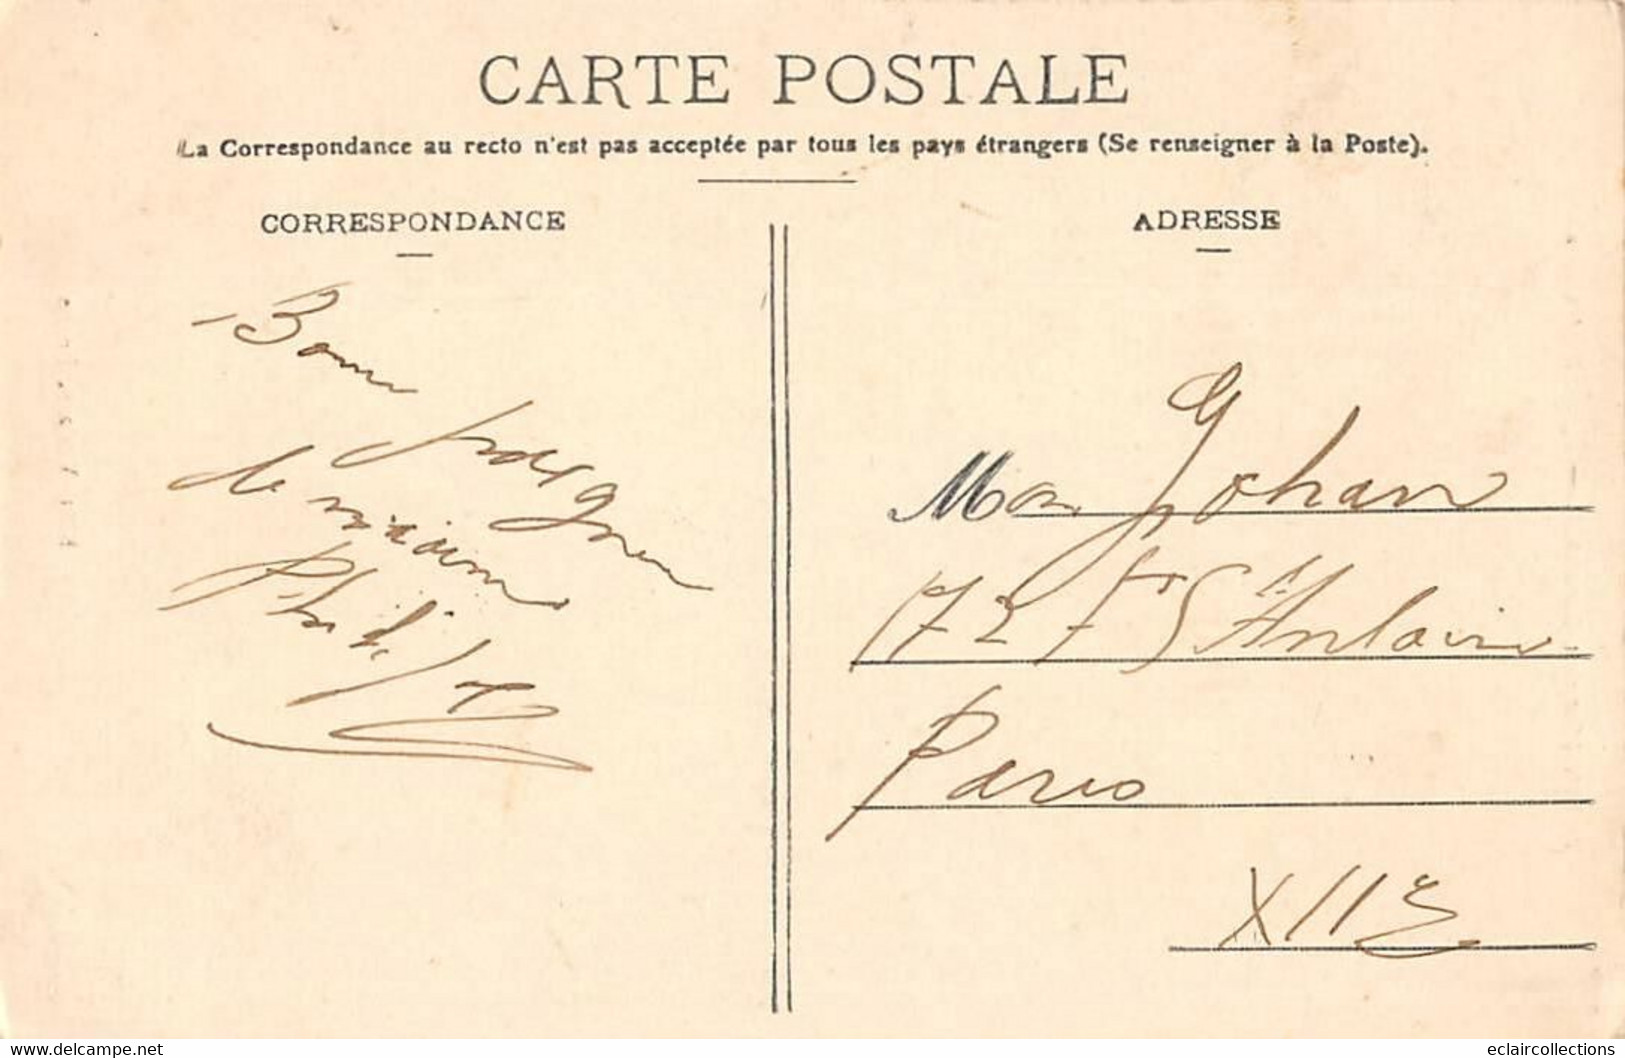 CARTE POSTALE
La Correspondance au recto n'est pas acceptée par tous les pays étrangers (Se renseigner à la Poste).
CORRESPONDANCE
ADRESSE
Bonne
poignée
de main
Mon Johan
172 f g St Antoine
Paris
XIIe
eclaircollections